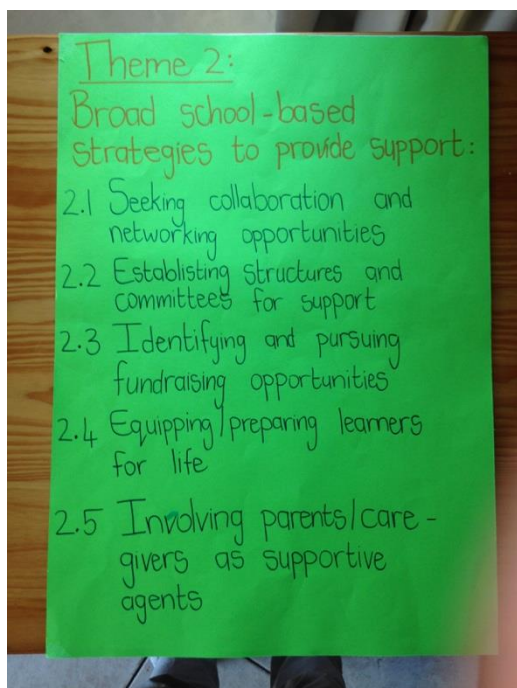 Theme 2:
Broad school-based
strategies to provide support:
2.1 Seeking collaboration and
networking opportunities
2.2 Establisting structures and
committees for support
2.3 Identifying and pursuing
fundraising opportunities
2.4 Equipping/preparing learners
for life
2.5 Involving parents/care-
givers as supportive
agents